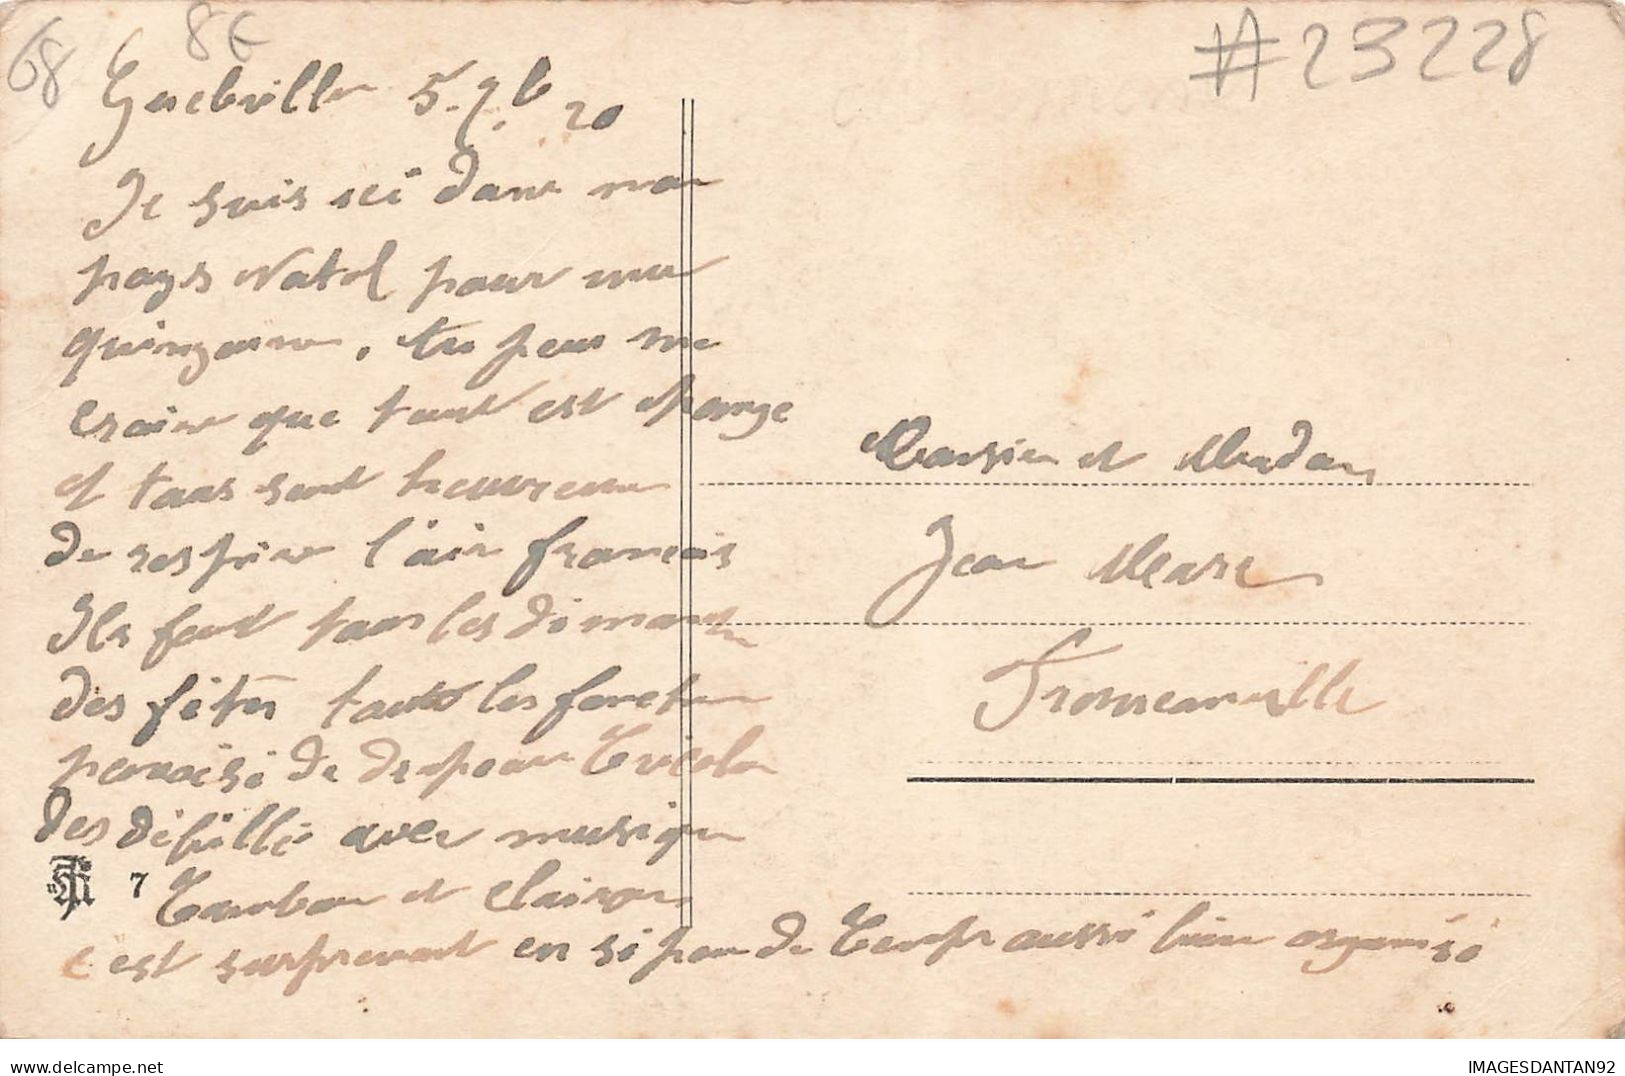 68
8€
#23228
Guebviller 5-7.b 20
Je suis ici dans mon
pays Natal pour une
quinzaine, tu peux me
craire que tout est change
et tous sont heureux
de respire l'air francais
Ils font tous les dimanche
des fêtes toute les
pavoisé de drapeau Tricolor
des défillé avec musique
7 Tambour et Clairons
c est surprenant en si peu de Temps aussi bien organisé
Monsieur et Madame
Jean
IMAGESDANTAN92